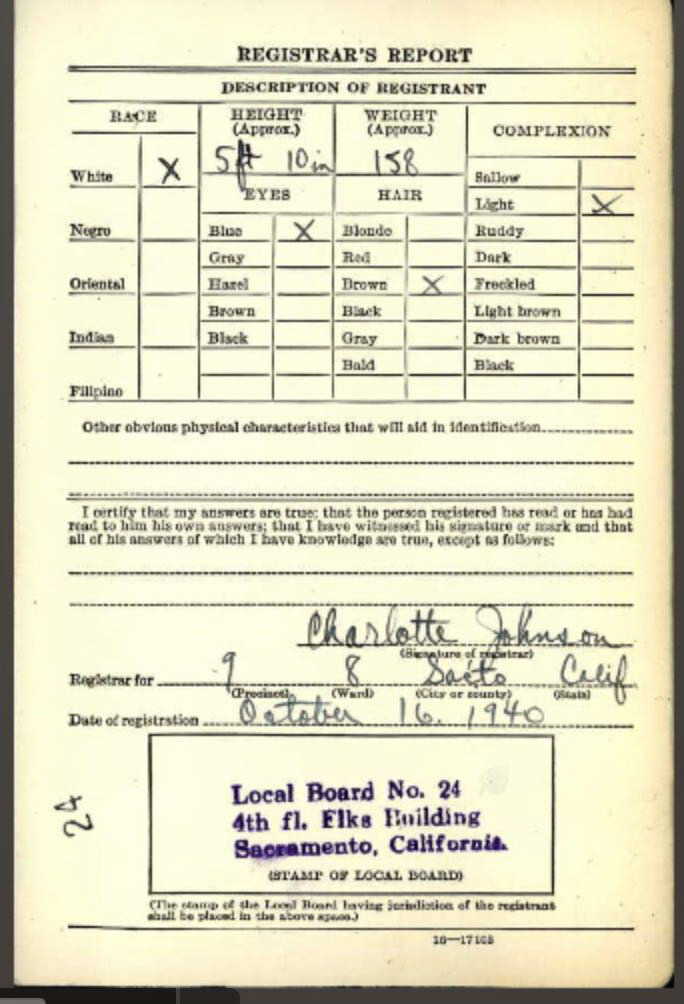 REGISTRAR'S REPORT
DESCRIPTION OF REGISTRANT
RACE
HEIGHT
(Approx.)
WEIGHT
(Approx.)
COMPLEXION
5 ft 10 in
158
White X
EYES
HAIR
Sallow
Light X
Negro
Blue X
Blonde
Ruddy
Gray
Red
Dark
Oriental
Hazel
Brown X
Freckled
Brown
Black
Light brown
Indian
Black
Gray
Dark brown
Bald
Black
Filipino
Other obvious physical characteristics that will aid in identification
I certify that my answers are true; that the person registered has read or has had
read to him his own answers; that I have witnessed his signature or mark and that
all of his answers of which I have knowledge are true, except as follows:
Charlotte Johnson
(Signature of registrar)
Registrar for 9 8 Sacto Calif
(Precinct) (Ward) (City or county) (State)
Date of registration October 16. 1940
24
Local Board No. 24
4th fl. Elks Building
Sacramento, California.
(STAMP OF LOCAL BOARD)
(The stamp of the Local Board having jurisdiction of the registrant
shall be placed in the above space.)
16—17105